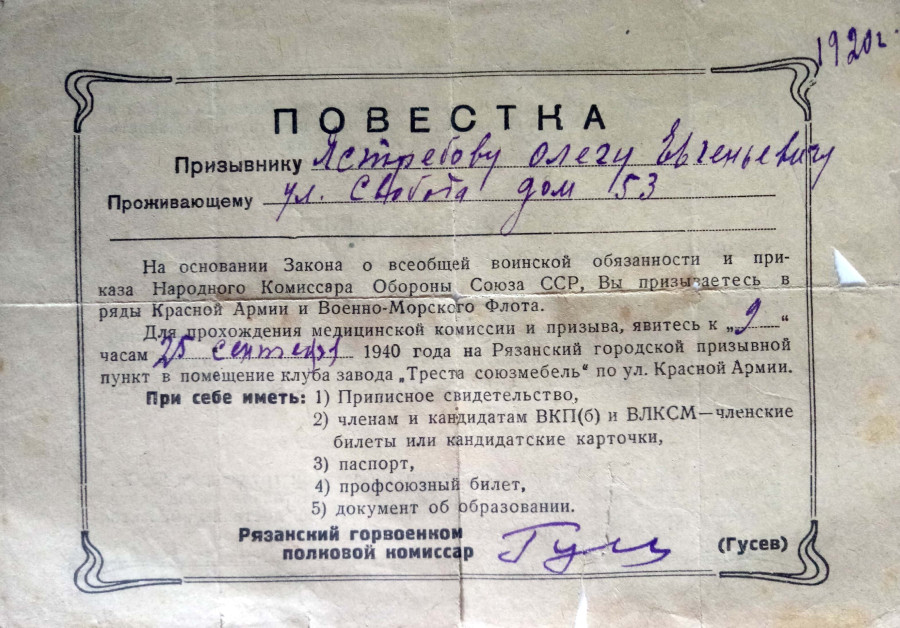 1920 г.
ПОВЕСТКА
Призывнику Ястребову Олегу Евгеньевичу
Проживающему ул. Свобода дом 53
На основании Закона о всеобщей воинской обязанности и при-
каза Народного Комиссара Обороны Союза ССР, Вы призываетесь в
ряды Красной Армии и Военно-Морского Флота.
Для прохождения медицинской комиссии и призыва, явитесь к „9“
часам 25 сентября 1940 года на Рязанский городской призывной
пункт в помещение клуба завода „Треста союзмебель“ по ул. Красной Армии.
При себе иметь: 1) Приписное свидетельство,
2) членам и кандидатам ВКП(б) и ВЛКСМ—членские
билеты или кандидатские карточки,
3) паспорт,
4) профсоюзный билет,
5) документ об образовании.
Рязанский горвоенком
полковой комиссар
(Гусев)